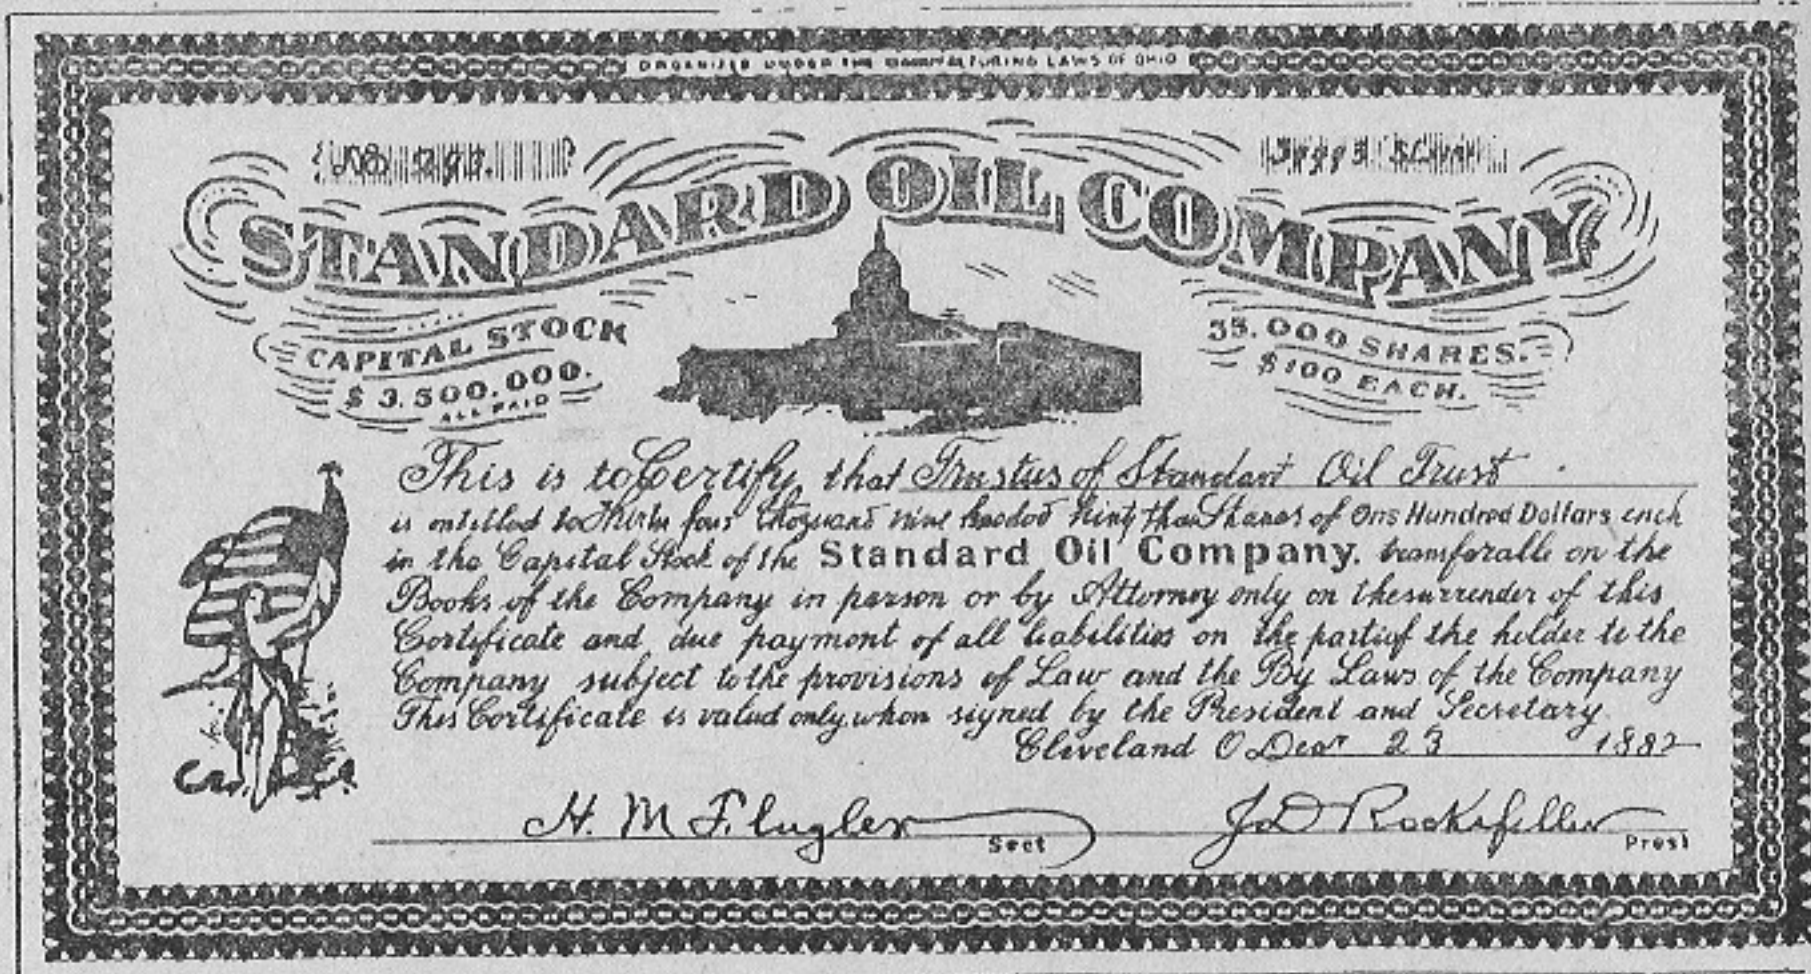 ORGANIZED UNDER THE MANUFACTURING LAWS OF OHIO
34993
STANDARD OIL COMPANY
CAPITAL STOCK
$3.500.000.
ALL PAID
35.000 SHARES.
$100 EACH.
This is to Certify that Trustus of Standart Oil Trust
is entitled to Thirtn four thousand nine hundod ninty Shares of One Hundred Dollars each
in the Capital Stock of the Standard Oil Company. transferalle on the
Books of the Company in person or by Attorney only on the surrender of this
Certificate and due payment of all liabilities on the part of the holder to the
Company subject to the provisions of Law and the By Laws of the Company
This Certificate is valud only when signed by the President and Secretary.
Cleveland O 23 1882
H. M. Flugler Sect
J D Rockefeller Prest